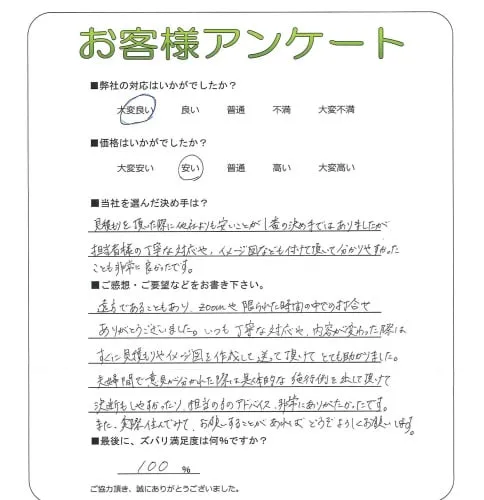 お客様アンケート
■弊社の対応はいかがでしたか?
大変良い 良い 普通 不満 大変不満
■価格はいかがでしたか?
大変安い 安い 普通 高い 大変高い
■当社を選んだ決め手は?
見積りを頂いた際に他社よりも安いことが1番の決め手ではありましたが
担当者様の丁寧な対応や、イメージ図なども付けて頂いて分かりやすかった
ことも非常に良かったです。
■ご感想・ご要望などをお書き下さい。
遠方であることもあり、zoomや限られた時間の中での打合せ
ありがとうございました。いつも丁寧な対応や、内容が変わった際は
すぐに見積りやイメージ図を作成して送って頂けてとても助かりました。
夫婦間で意見が分かれた際は基本的な施行例を出して頂けて
決断もしやすかったり、担当の方のアドバイス、非常にありがたかったです。
また、実際住んでみて、お願いすることがあればどうぞよろしくお願いします。
■最後に、ズバリ満足度は何%ですか?
100 %
ご協力頂き、誠にありがとうございました。